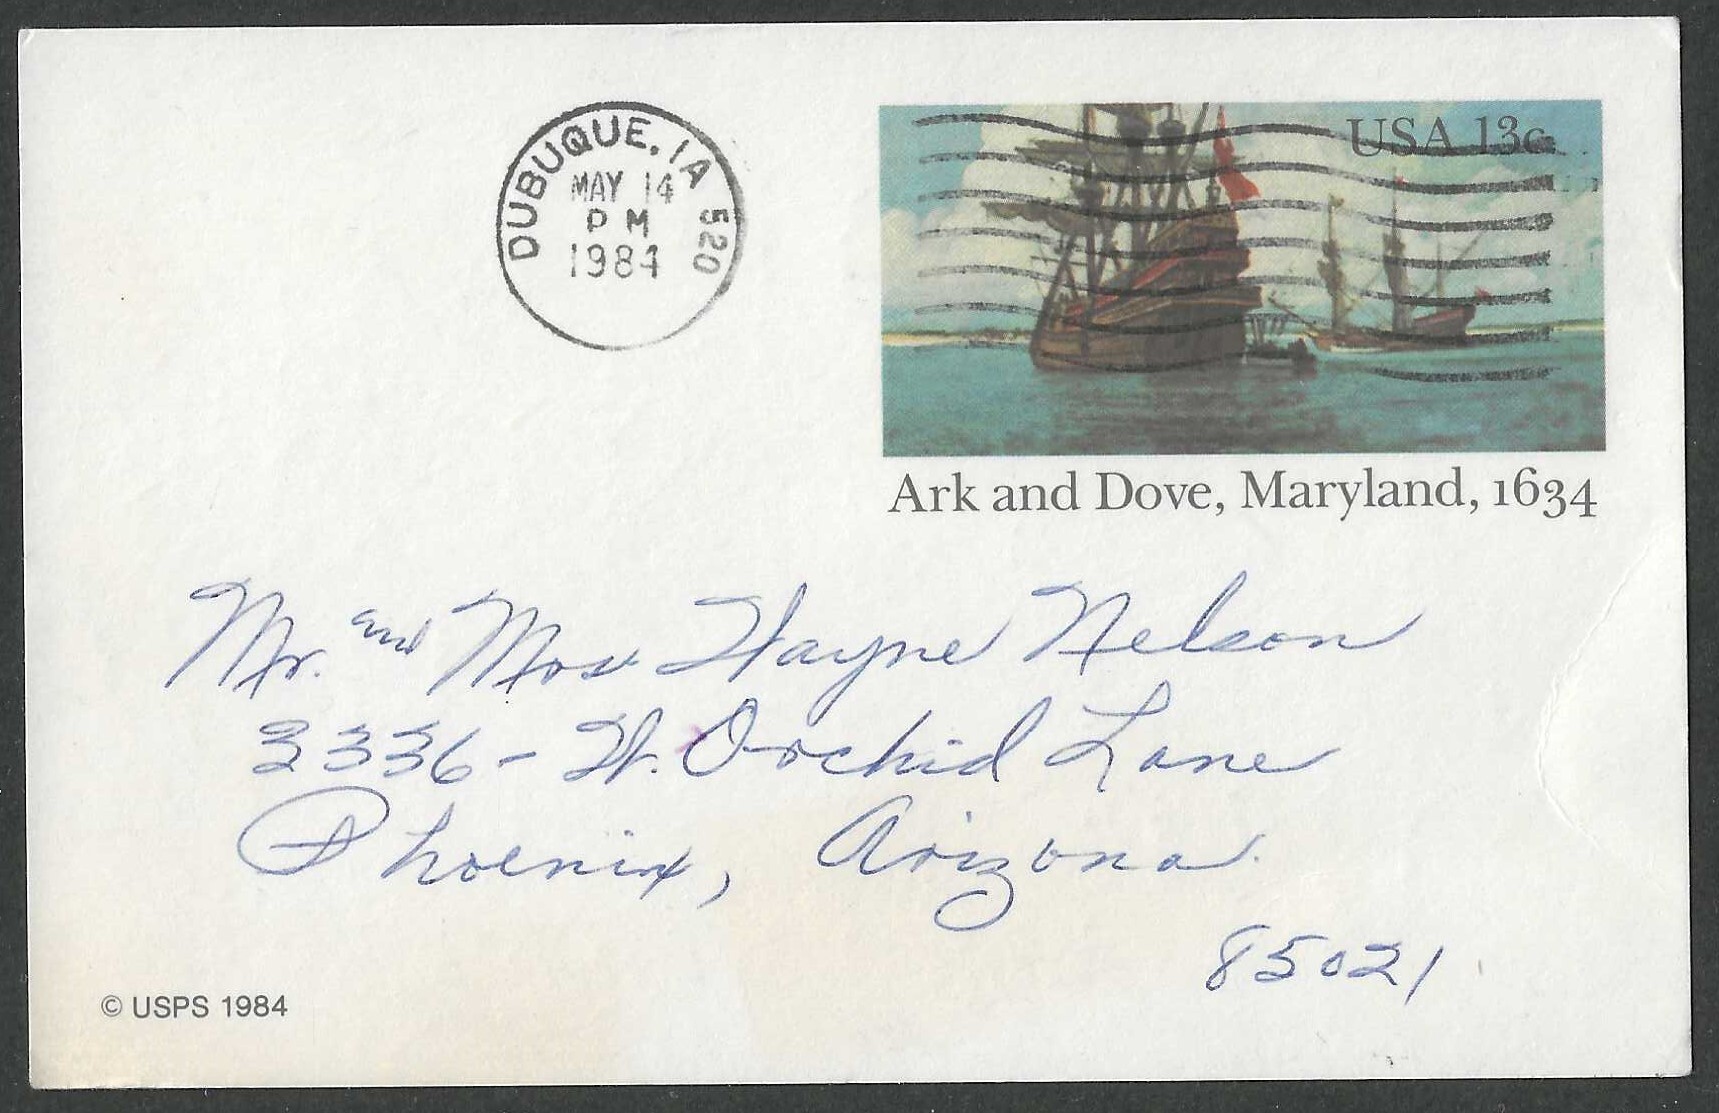 DUBUQUE, IA 520
MAY 14
PM
1984
USA 13c
Ark and Dove, Maryland, 1634
Mr. and Mrs Wayne Nelson
3336 - W. Orchid Lane
Phoenix, Arizona.
85021
© USPS 1984